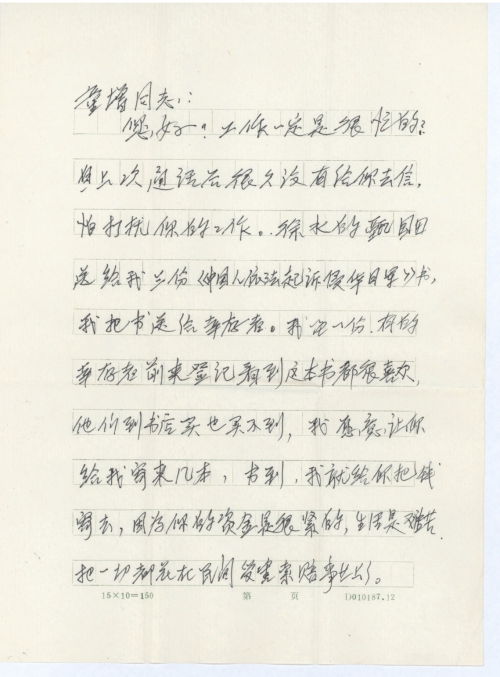 童增同志:
您好!工作一定是很忙的?
自上次通话后很久没有给你去信,
怕打扰你的工作。徐水的甄国田
送给我三份《中国人依法起诉侵华日军》书,
我把书送给幸存者。我留一份,有的
幸存者前来登记看到这本书都很喜欢,
他们到书店买也买不到,我想让你
给我寄来几本,书到,我就给你把钱
寄去,因为你的资金是很紧的,生活是艰苦,
把一切都花在民间受害索赔事业上了。
15×10=150 第 页 D010187.12